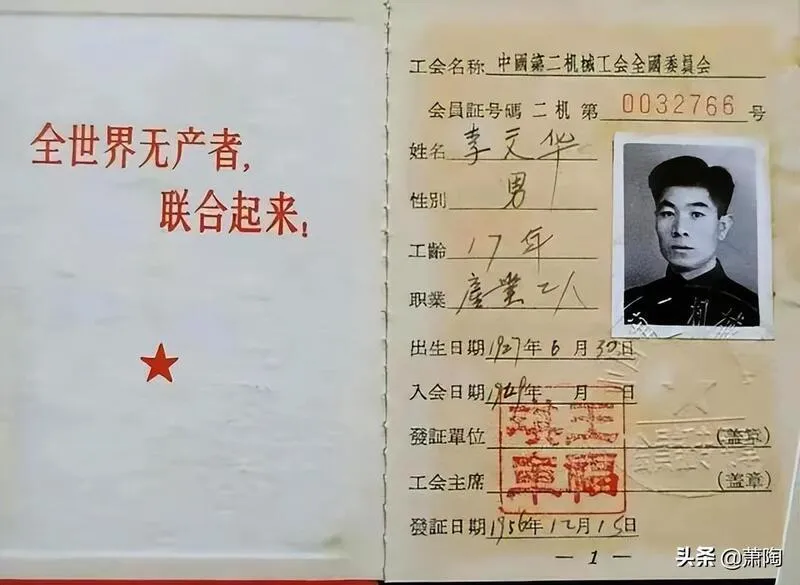 全世界无产者,
联合起来!
工会名称 中國第二机械工会全國委員会
会員証号碼 二机 第 0032766 号
姓名 李文华
性別 男
工齡 17年
职業 產業工人
出生日期 1927年6月30日
入会日期 1949年 月 日
發証單位 (盖章)
工会主席 (盖章)
發証日期 1956年12月15日
— 1 —
头条 @萧陶